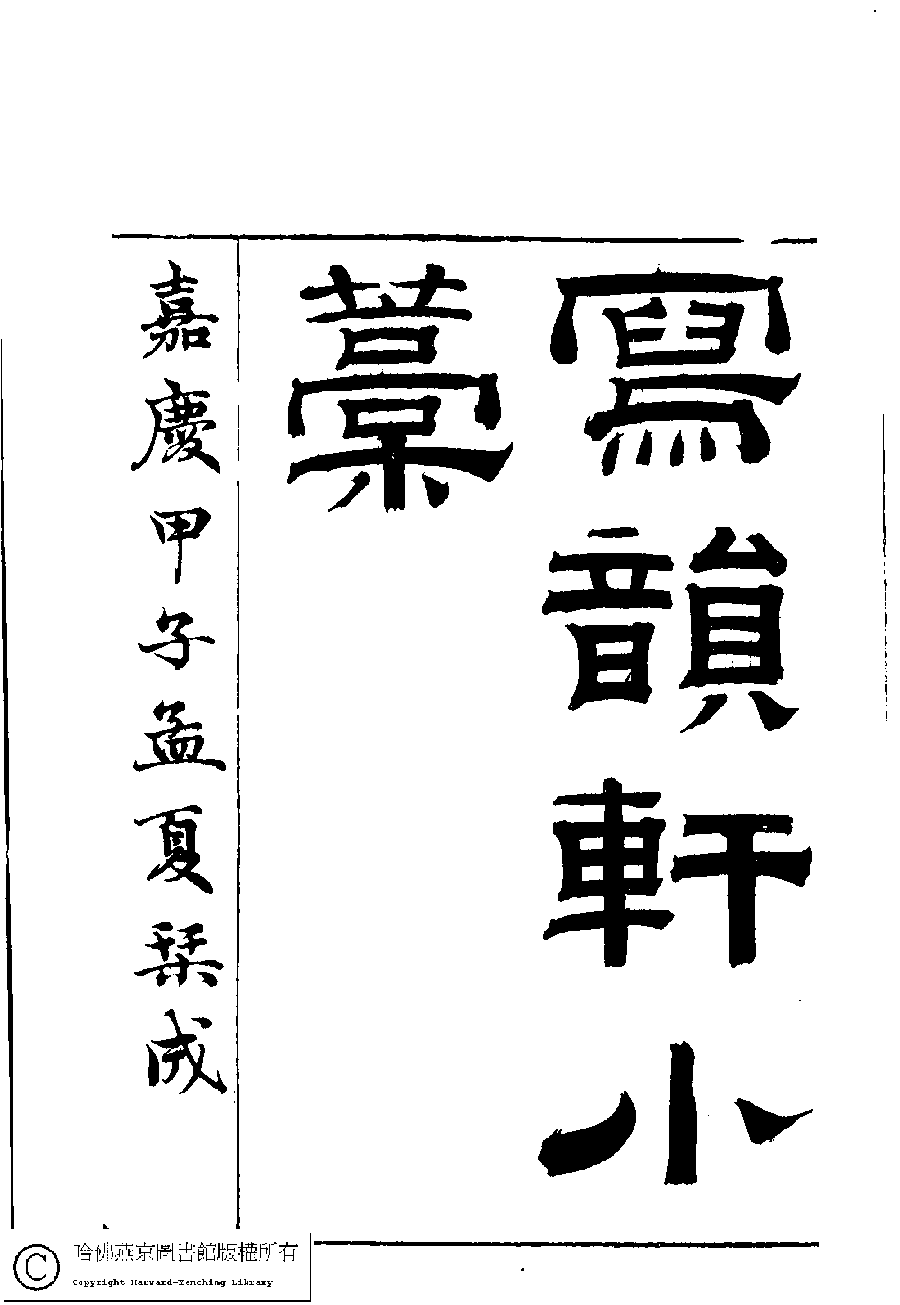 寫韻軒小
藁
嘉慶甲子孟夏栞成
哈佛燕京圖書館版權所有
Copyright Harvard-Yenching Library